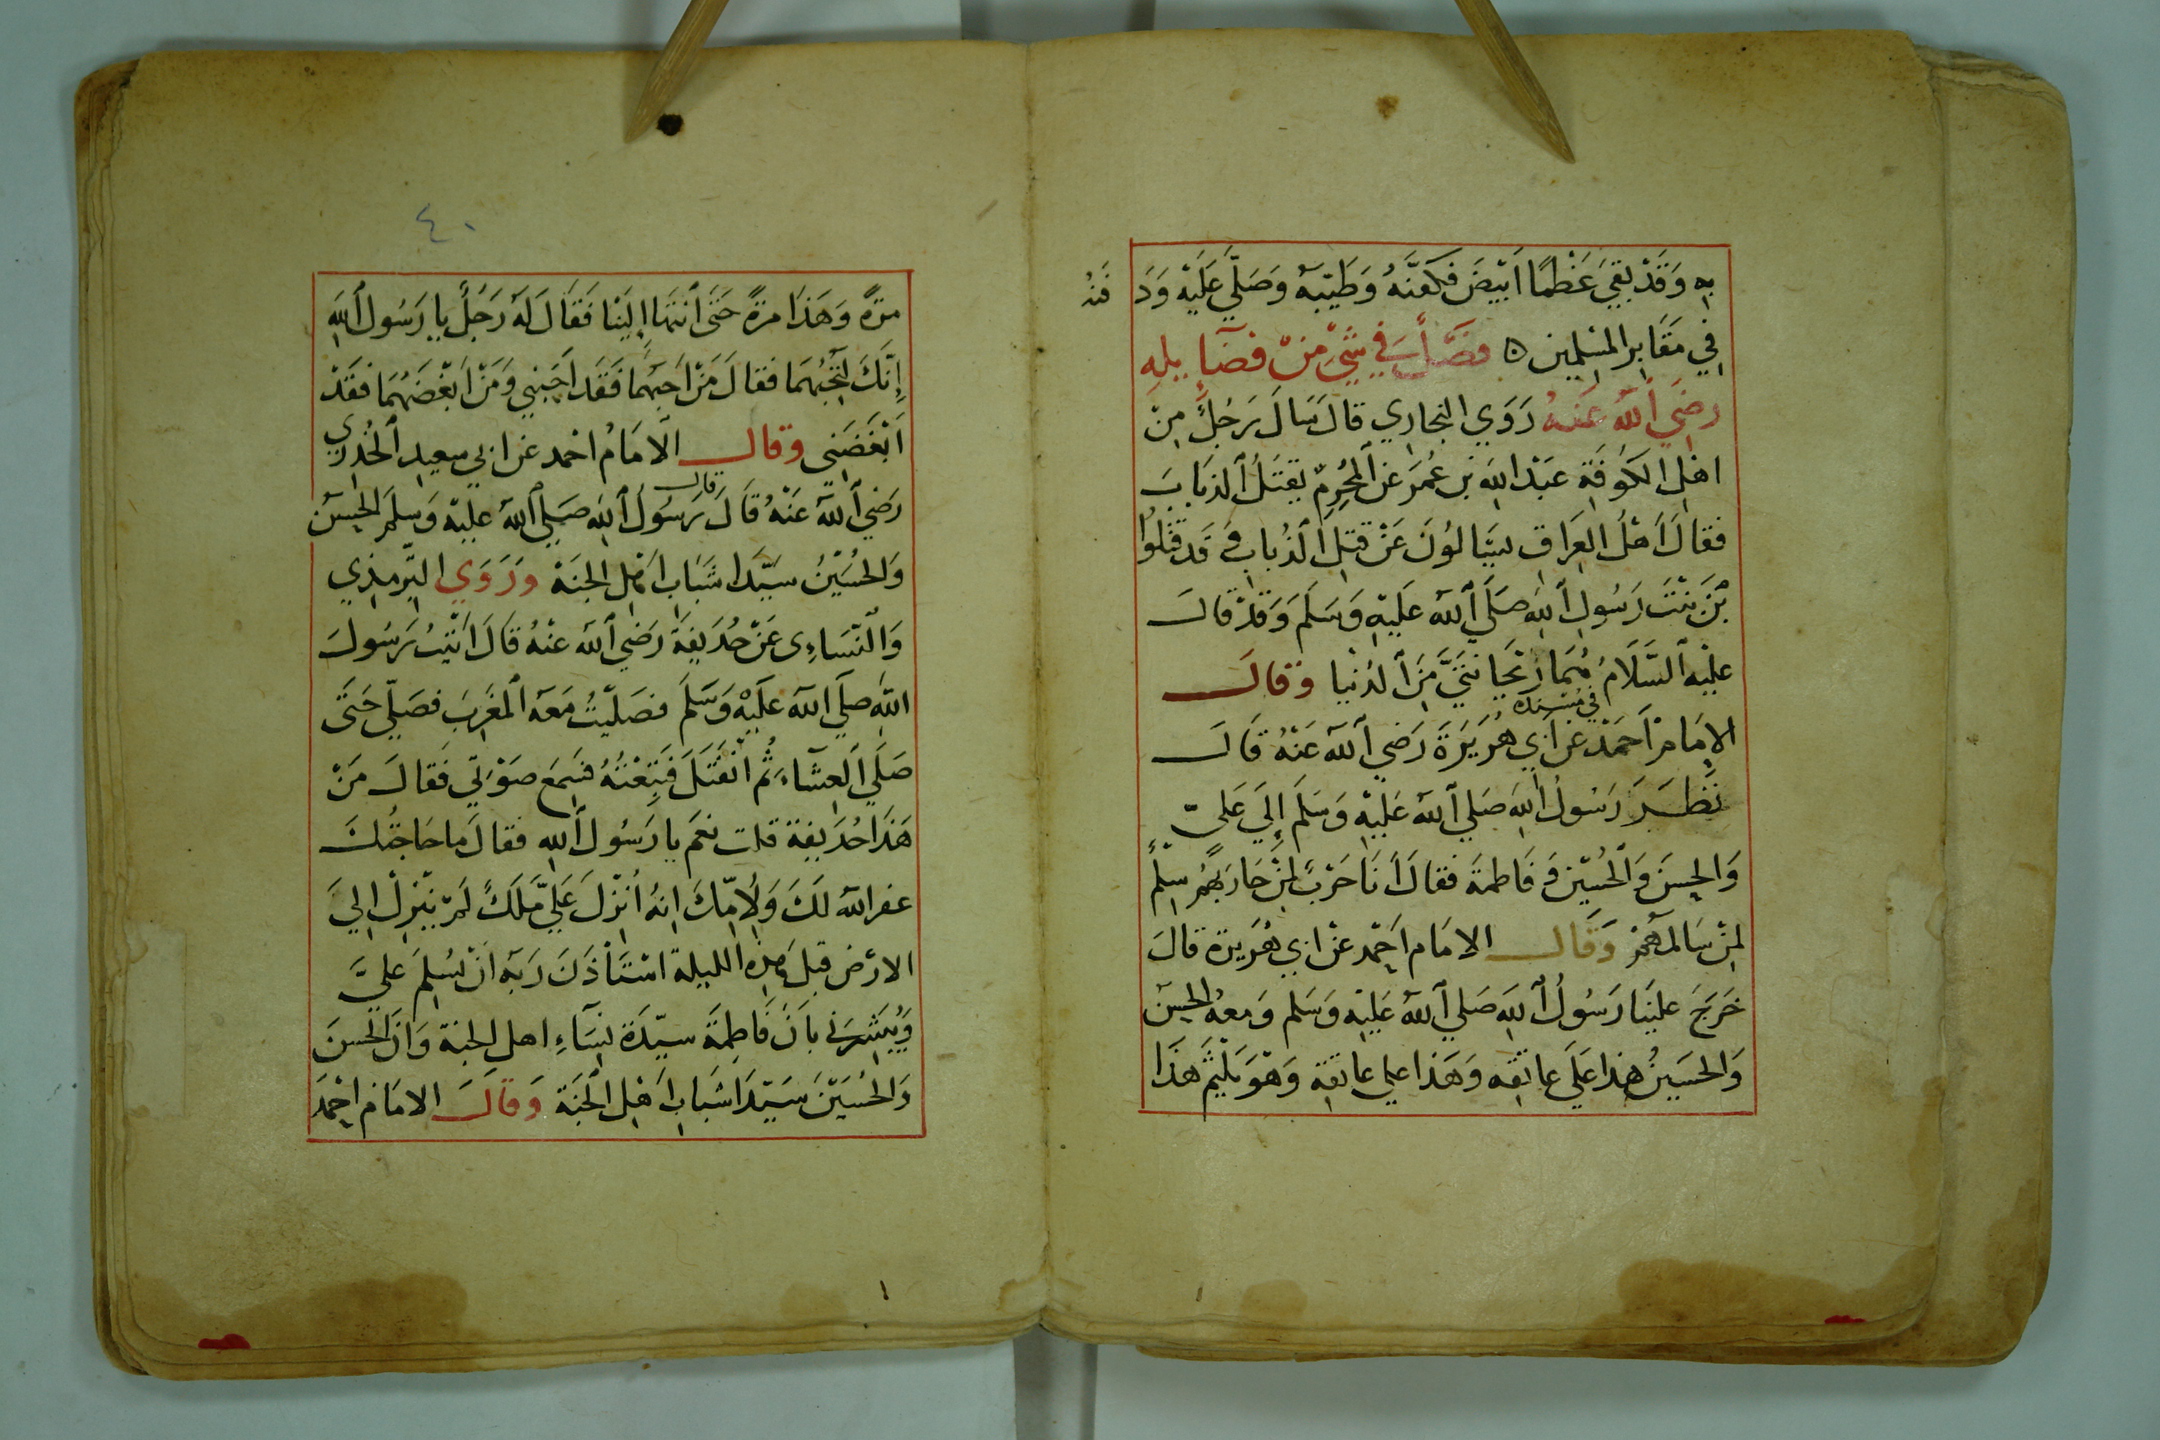 به وَقَدْ بَقِيَ عَظْمًا اَبْيَضَ فَكَفَّنَهُ وَطَيَّبَهُ وَصَلَّي عَلَيْهِ وَدَ فَنَهُ
فِي مَقَابِرِ المُسْلِمين ه فَصْلٌ فِي شَيْءٍ مِنْ فَضَآئِلِهِ
رَضِيَ اللهُ عَنهُ رَوَي البخاري قالَ سَالَ رَجُلٌ مِنْ
اهْلِ الكُوفَةِ عَبْدَ اللهِ بن عُمَرَ عَنِ المُحْرِمِ يَقتُلُ الذبَابَ
فقالَ اَهْلُ العِرَاقِ يسَالُونَ عَنْ قَتلِ الذُبابِ وَ قَد قتَلُوا
بْنَ بنْتَ رَسُولِ اللهِ صَلَي اللهُ عَلَيْهِ وَسَلَمَ وَقَدْ قَالَ
عليْهِ السَّلَامُ هُمَا رَيْحَانَتَيَّ مِنَ الدُنْيا وَقالَ
الإِمَامْ اَحَمَدْ في مسنده عن اَبي هُرَيَرَةَ رَضي اللهُ عَنْهُ قَالَ
نَظَرَ رَسُولُ اللهِ صَلي اللهُ عَلَيْهِ وَسَلَمَ إِلَي عَليّ
وَالحِسنَ وَالحُسَيْن وَ فَاطمَةَ فقالَ اَنَا حَرْبٌ لِمَنْ حَارَبَهُمْ سِلْمٌ
لِمَنْ سَالمَهُمْ وَقَالَ الامَام احمد عَنْ ابي هُرَيرة قالَ
خَرَجَ علينا رَسُولُ اللهِ صَلي اللهُ عَلَيْهِ وَسَلم وَمعهُ الحِسن
وَالحسَينُ هذا عَلَي عاتقه وَهَذا علي عاتقه وَهْوَ يَلْثِم هَذَا
٤٠
مرّةً وَهَذا مرّةً حَتَى انتهَا إِلَيْنا فَقَالَ لَهُ رَجُلٌ يا رَسُول اللهِ
إِنَّكَ لَتُحِبُّهُمَا فقالَ مَنْ اَحبَّهُما فَقَد اَحَبَنِي وَمَنْ ابْغَضَهُمَا فقَدْ
اَبْغَضَنِي وَقالَ الَامَامُ احْمد عن ابي سعيدِ الخُدري
رَضِيَ اللهُ عَنْهُ قَالَ قال رَسُولُ اللهِ صَلي اللهُ عليْهِ وَسَلمَ الحِسن
وَالحُسَيْنُ سَيَّدَا شَبَابِ اهْلِ الجنَةْ وَرَوَي التِّرمِذِي
وَالنّسَاءِى عَنْ حُذَيفَةَ رَضي اللهُ عَنْهُ قَالَ اَتَيْتُ رَسُولَ
اللهِ صلي اللهُ عَلَيْهِ وَسَلَمَ فَصَلَيْتُ مَعَهُ المغَرِبَ فَصَلّي حَتَى
صَلَي العِشَآءَ ثُم انْفَتَلَ فَتَبِعْتُهُ فسَمِعَ صَوْتي فَقالَ مَنْ
هَذَا حُذَيفة قلت نعَم يا رَسُولَ اللهِ فقالَ ما حَاجتُكَ
غفر اللهُ لَكَ وَلِاُمِّكَ اِنهُ اُنْزِلَ عَلَيَّ مَلَكٌ لَمْ يَنْزِلْ اِلَيَ
الارْضِ قَبلَ هذِهِ الليلة اسْتَأْذَنَ رَبَهُ اَنْ يُسَلِمَ عليَّ
وَيُبَشِرَني بانَ فَاطِمَةَ سيّدَة نِسَآءِ اهلِ الجنة وَانَ الحِسنَ
وَالحُسَيْنَ سَيّدَا شَبَابِ اَهْلِ الجَنَة وَقَالَ الامَام احْمَد